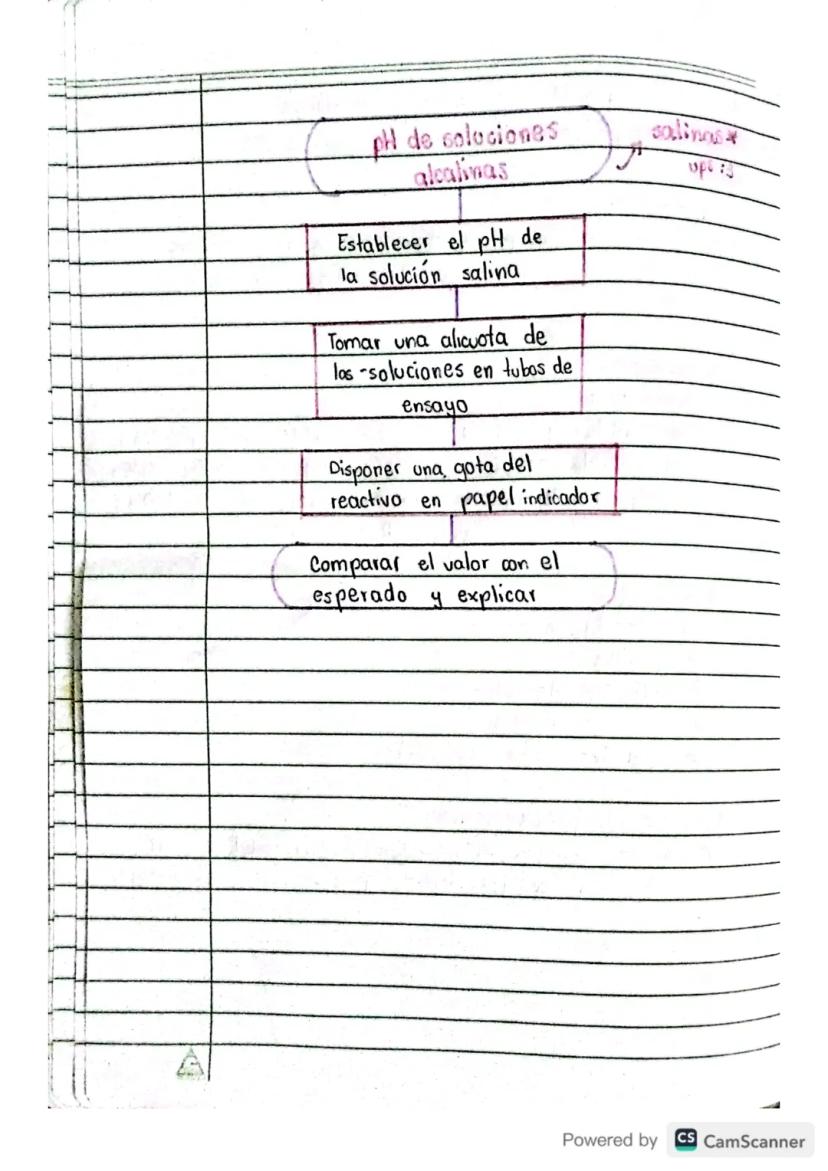 pH de soluciones
alcalinas
salinas*
ups :s
Establecer el pH de
la solución salina
Tomar una alicuota de
las soluciones en tubos de
ensayo
Disponer una gota del
reactivo en papel indicador
Comparar el valor con el
esperado y explicar
Powered by CS CamScanner